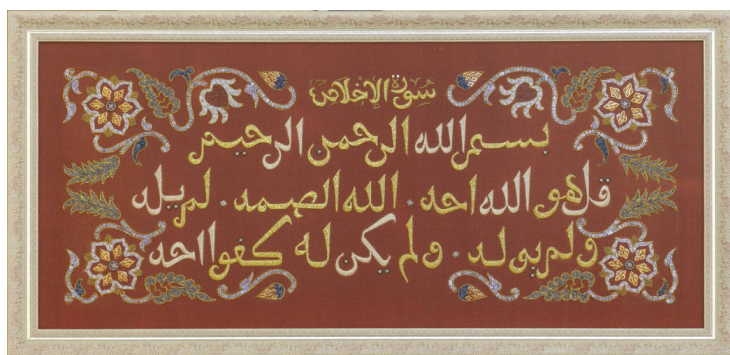 سورة الإخلاص
بسم الله الرحمن الرحيم
قل هو الله احد * الله الصمد * لم يلد
ولم يولد * ولم يكن له كفوا احد